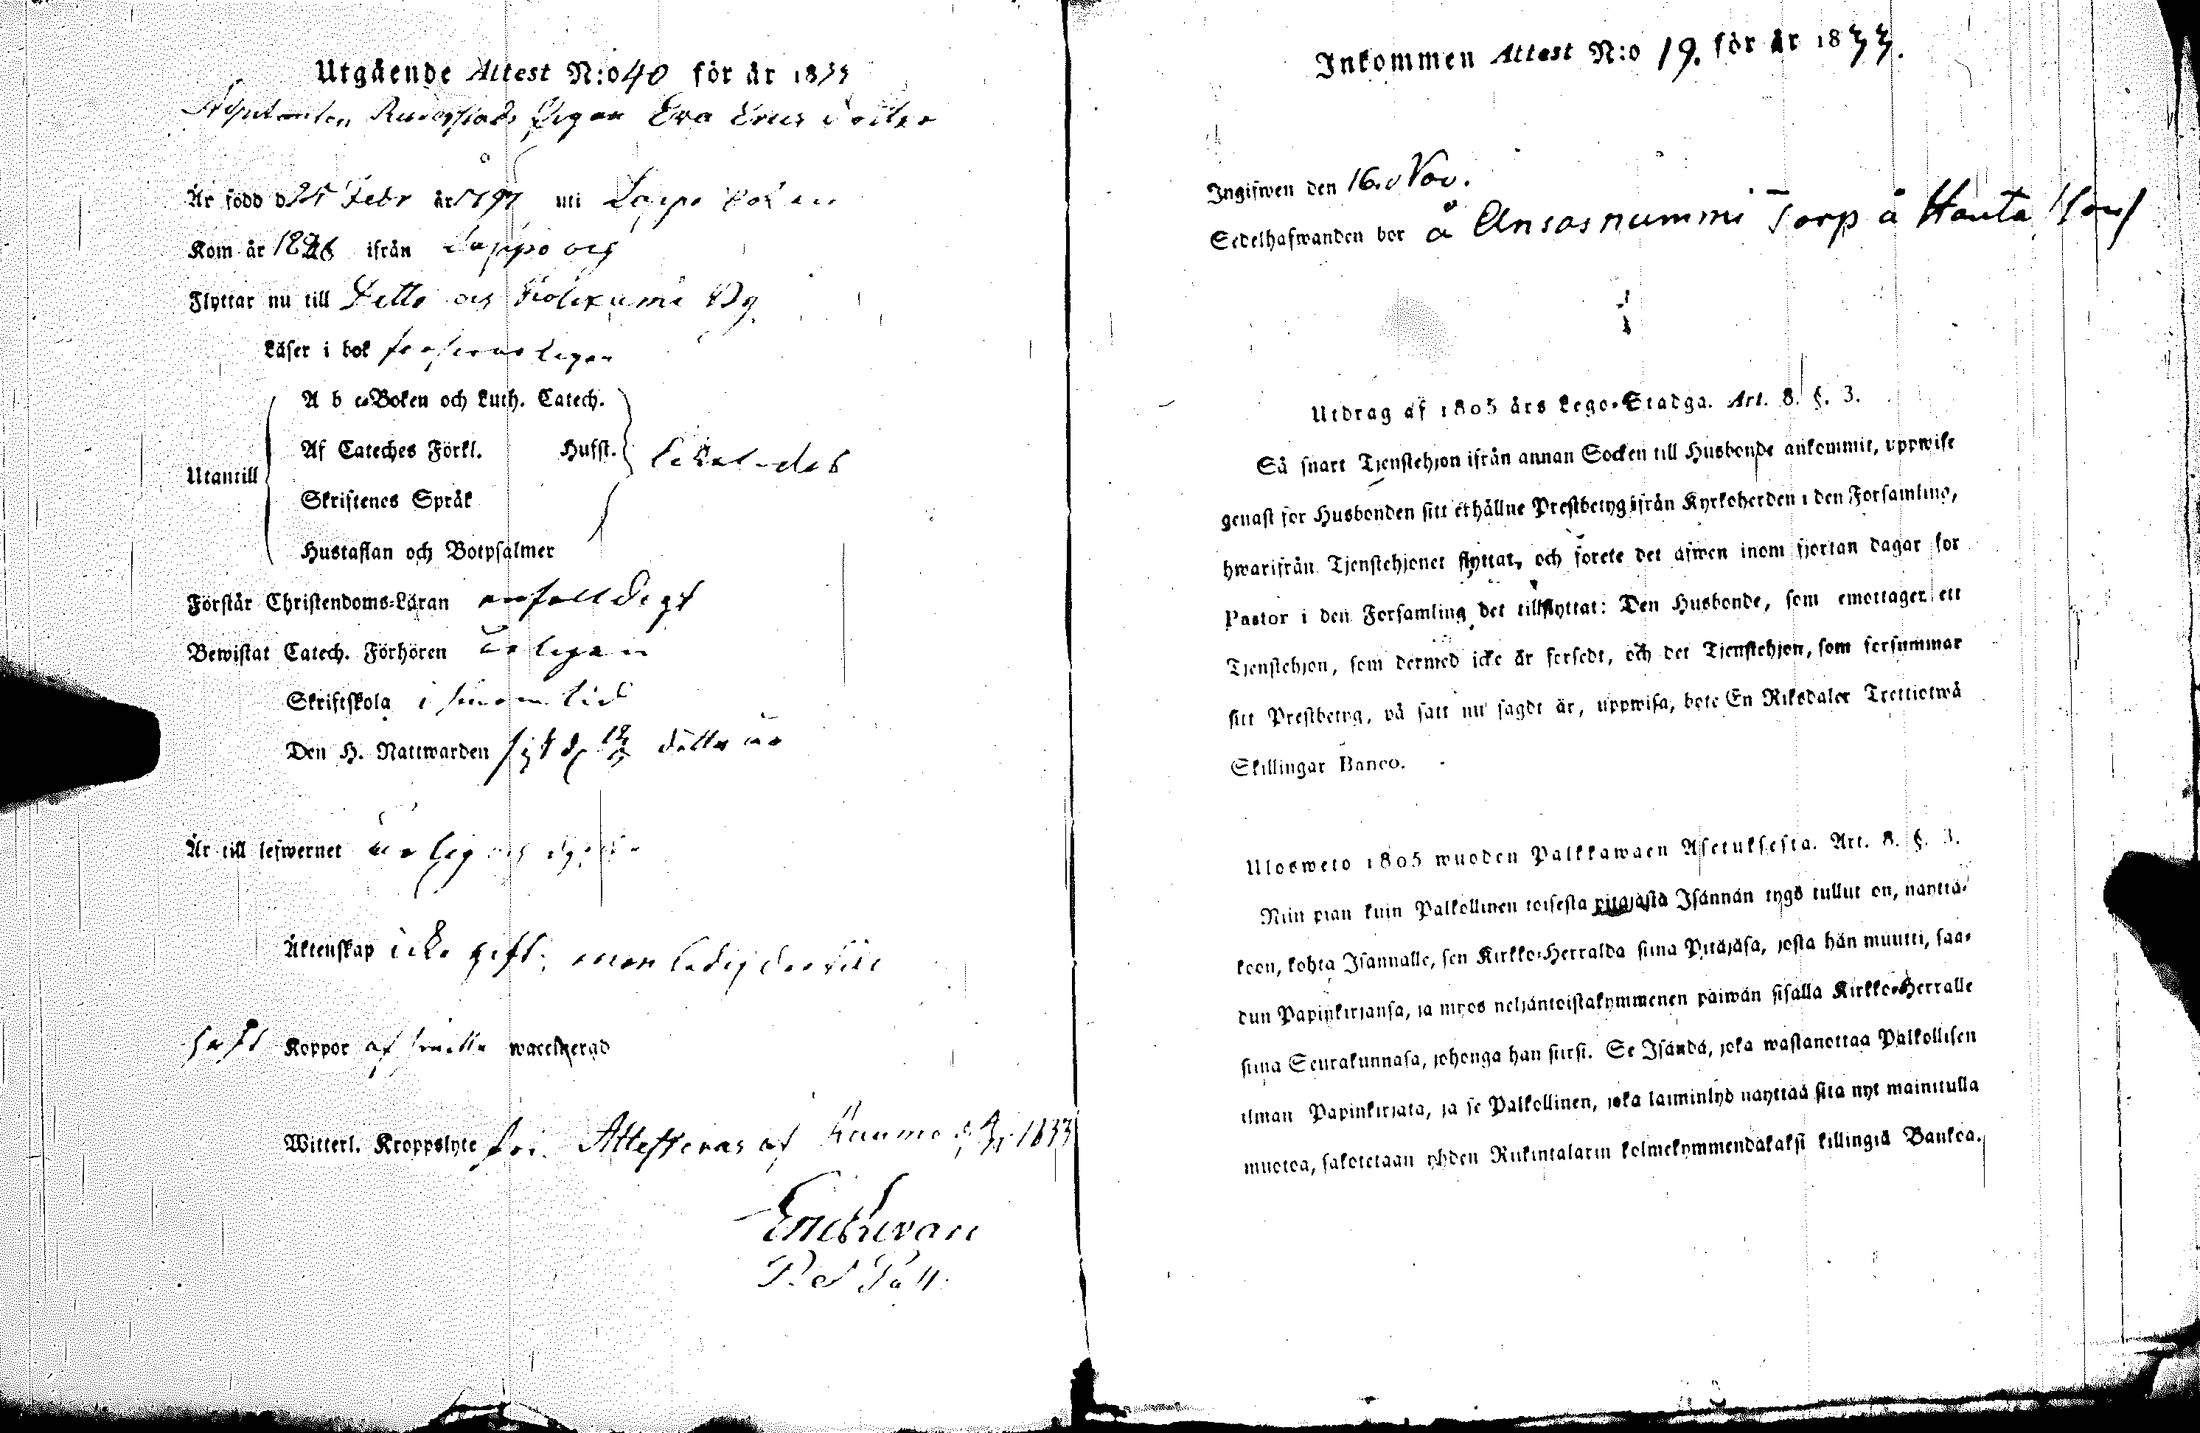 Utgående Attest N:o 40 för år 1833
Eva Erics dotter
Är född d 25 Febr år 1797 uti Lappo
Kom år 1826 ifrån Lappo och
Flyttar nu till Ditto och By
Läser i bok
A b c-Boken och Luth. Catech.
Af Cateches Förkl. Husst.
Utantill likaledes
Skriftenes Språk
Hustaflan och Botpsalmer
Förstår Christendoms-Läran enfalldigt
Bewistat Catech. Förhören årligen
Skriftskola i sinom tid
Den H. Nattwarden detta år
Är till lefwernet ärlig och
Äktenskap icke gift, men ledig dertill
haft Koppor af waccinerad
Witterl. Kroppslyte fri. Attesteras af Raumo 1833
Inkommen Attest N:o 19. för år 1833.
Ingifwen den 16. Nov.
Sedelhafwanden bor å Ansasnummi Torp å Hauta
Utdrag af 1805 års Lego-Stadga. Art. 8. §. 3.
Så snart Tjenstehjon ifrån annan Socken till Husbonde ankommit, uppwise
genast för Husbonden sitt erhållne Prestbetyg ifrån Kyrkoherden i den Församling,
hwarifrån Tjenstehjonet flyttat, och förete det äfwen inom fjortan dagar för
Pastor i den Församling det tillflyttat: Den Husbonde, som emottager ett
Tjenstehjon, som dermed icke är försedt, och det Tjenstehjon, som försummar
sitt Prestbetyg, på sätt nu sagdt är, uppwisa, böte En Riksdaler Trettiotwå
Skillingar Banco.
Ulosweto 1805 wuoden Palkkawäen Asetuksesta. Art. 8. §. 3.
Niin pian kuin Palkollinen toisesta pitäjästä Isännän tygö tullut on, näyttä-
köön, kohta Isännälle, sen Kirkko-Herralda siinä Pitäjäsä, josta hän muutti, saa-
dun Papinkirjansa, ja myös neljäntoistakymmenen päiwän sisällä Kirkko-Herralle
siinä Seurakunnasa, johonga hän siirsi. Se Isändä, joka wastanottaa Palkollisen
ilman Papinkirjata, ja se Palkollinen, joka laiminlyö näyttää sitä nyt mainitulla
muotoa, sakotetaan yhden Riikintalarin kolmekymmendäkaksi killingiä Bankoa.